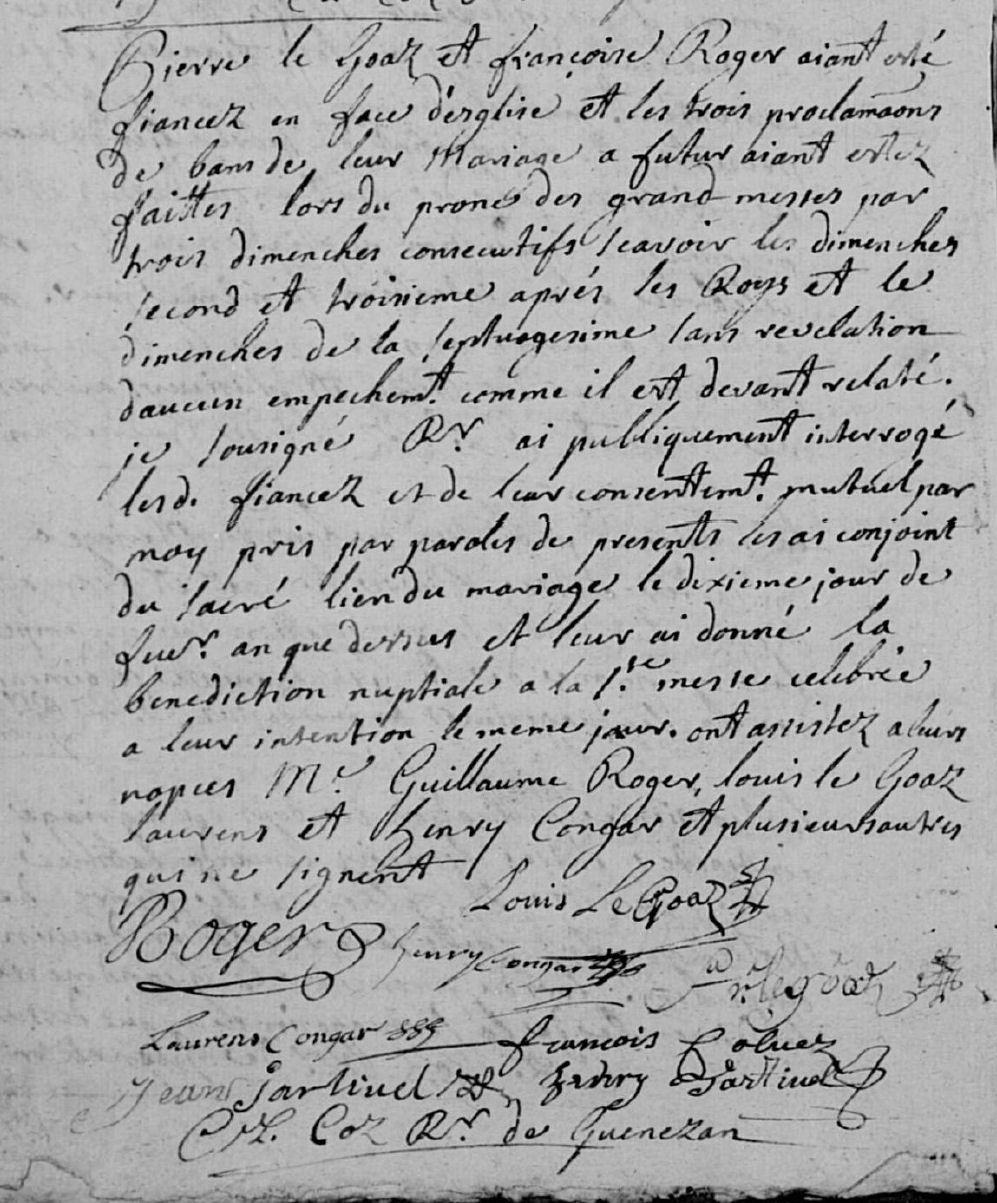 Pierre le Goaz et françoise Roger aiant esté
fiancez en face d'esglise et les trois proclamaons
de bans de leur Mariage a futur aiant estez
faittes lors du prone des grand messes par
trois dimenches consecutifs scavoir les dimenches
second et troisieme aprés les Roys et le
dimenches de la septuagesime sans revelation
daucun empechemt. comme il est devant relaté.
je sousigné Rr. ai publiquement interrogé
lesd. fiancez et de leur consentemt. mutuel par
moy pris par paroles de presents les ai conjoint
du sacré lien du mariage le dixieme jour de
fuer. an que dessus et leur ai donné la
benediction nuptiale a la ste. messe celebrée
a leur intention le meme jour. ont assistez a leurs
nopces Mr. Guillaume Roger, louis le Goaz
laurens et henry Congar et plusieurs autres
qui ne signent Louis Le Goaz
Roger henry Congar le goaz
Laurens Congar françois
Jean Partivel henry Partivel
Coz Rr. de Guenezan